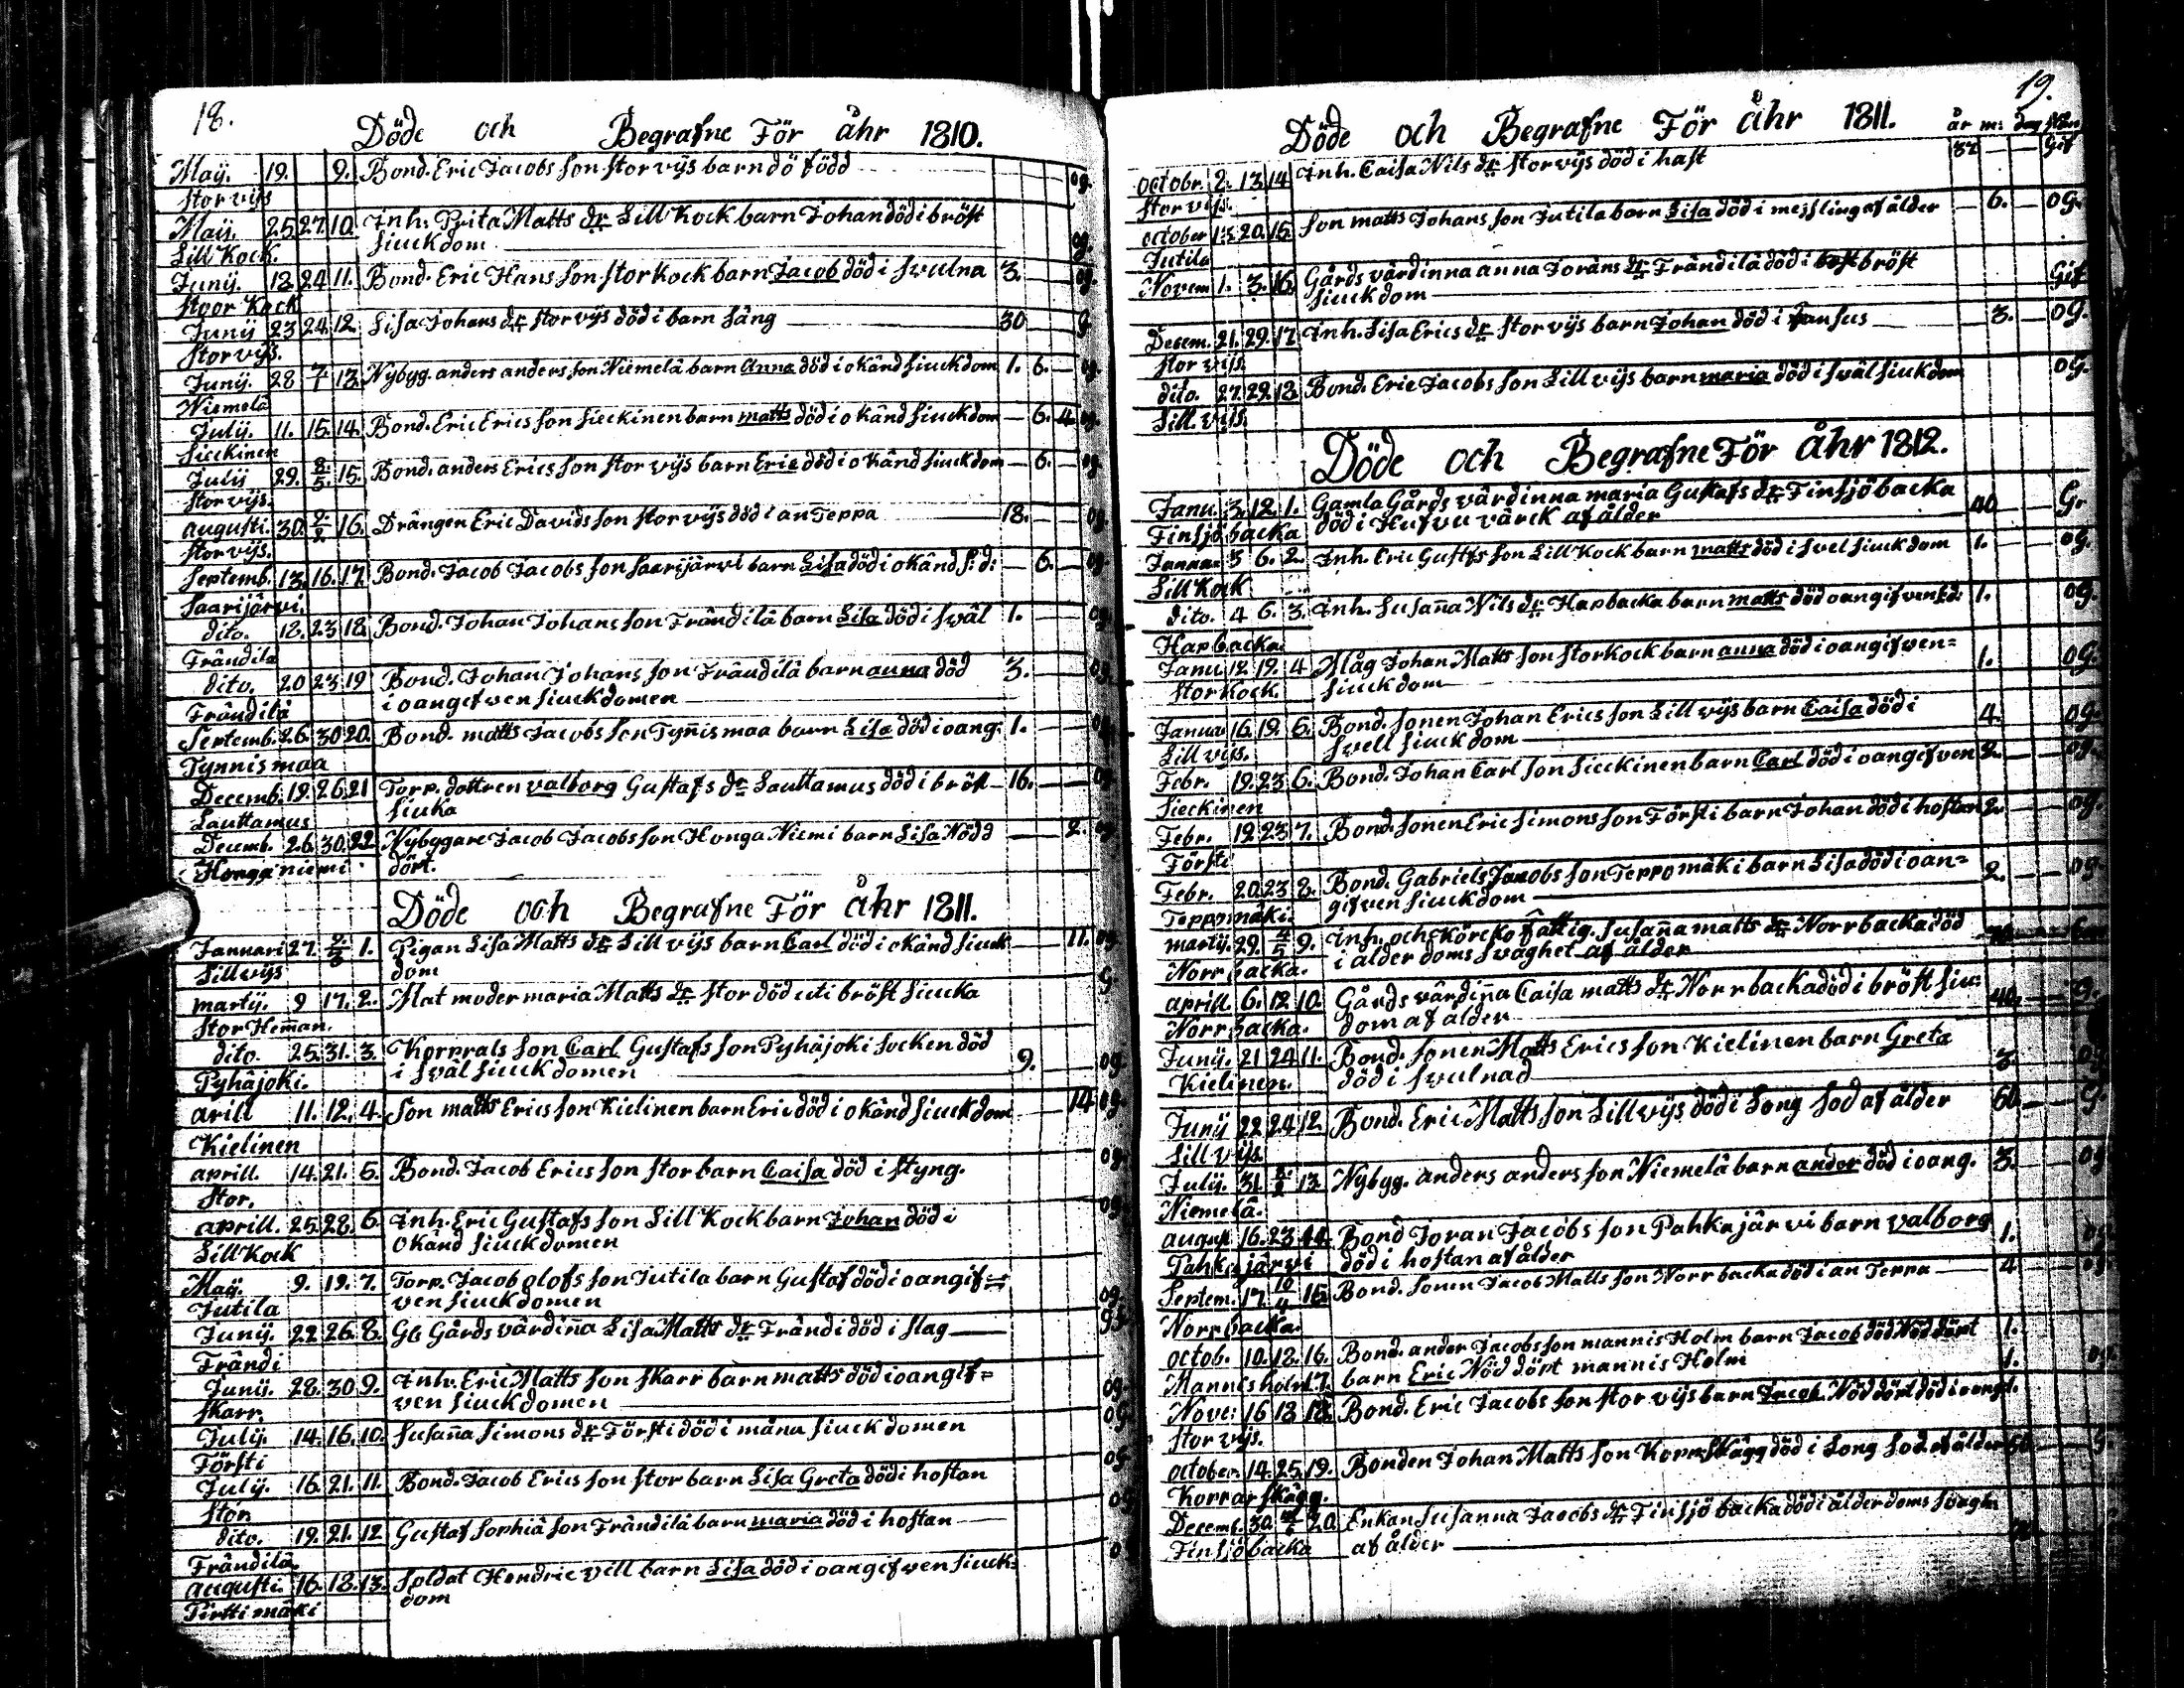 18.
Döde och Begrafne För åhr 1810.
Maij. 19. 9. Bond. Eric Jacobs son storvijs barn dö född og.
storvijs
Maij. 25 27. 10. Inh. Prita Matts dr Lill Kock barn Johan död i bröst
Lill Kock. siuckdom og.
Junij. 18. 24 11. Bond. Eric Hans son storkock barn Jacob död i svulna 3. og.
stoor Kock
Junij 23 24. 12. Lisa Johans dr storvijs död i barn säng 30 g.
storvijs.
Junij. 28 7/1 13. Nybyg. anders anders son Niemelä barn Anna död i okänd siuckdom 1. 6. og.
Niemelä
Julij. 11. 15. 14. Bond. Eric Erics son sieckinen barn matts död i okänd siuckdom 6. 4. og.
sieckinen
Julij 29. 8/5. 15. Bond. anders Erics son storvijs barn Eric död i okänd siuckdom 6. og.
storvijs.
augusti. 30. 9/2 16. Drängen Eric Davids son storvijs död i an Teppa 18. og.
storvijs.
Septemb. 13. 16. 17. Bond. Jacob Jacobs son saarijärvi barn Lisa död i okänd s: d: 6. og.
saarijärvi.
dito. 18. 23 18. Bond. Johan Johans son Frändilä barn Lisa död i sväl 1. og.
Frändila
dito. 20 23 19 Bond. Johan Johans son Frändilä barn anna död 3. og.
Frändilä i oangefven siuckdomen
Septemb. 26. 30 20. Bond. matts Jacobs son Tynnismaa barn Lisa död i oang. 1. og.
Tynnismaa
Decemb. 19. 26. 21 Torp. dottren valborg Gustafs dr Lauttamus död i bröst 16. og.
Lauttamus siuka
Decemb. 26. 30. 22. Nybyggare Jacob Jacobs son Honga Niemi barn Lisa Nödd 2. og
Honga niemi dört.
Döde och Begrafne För åhr 1811.
Januari 27. 2/3 1. Pigan Lisa Matts dr Lill vijs barn Carl död i okänd siuck 11. og
Lillvijs dom
martij. 9 17. 2. Mat moder maria Matts dr stor död uti bröst siucka g.
stor Heman.
dito. 25. 31. 3. Korprals son Carl Gustafs son Pyhäjoki socken död
Pyhäjoki. i sväl siuckdomen 9. og.
arill 11. 12. 4. Son matts Erics son Kielinen barn Eric död i okänd siuckdom 14 og.
Kielinen
aprill. 14. 21. 5. Bond. Jacob Erics son stor barn Caisa död i styng. og.
stor.
aprill. 25. 28. 6. Inh. Eric Gustafs son Lill Kock barn Johan död i og.
Lill Kock okänd siuckdomen
Maij. 9. 19. 7. Torp. Jacob olofs son Jutila barn Gustaf död i oangif=
Jutila ven siuckdomen og.
Junij. 22 26. 8. Gl. Gårds värdinna Lisa Matts dr Frändi död i slag
Frändi
Junij. 28. 30 9. Inh. Eric Matts son skarr barn matts död i oangif=
skarr. ven siuckdomen og.
Julij. 14. 16. 10. Susanna simons dr Försti död i måna siuckdomen og.
Försti
Julij. 16. 21. 11. Bond. Jacob Erics son stor barn Lisa Greta död i hostan og
stor.
dito. 19. 21. 12 Gustaf sophiä son Frändilä barn maria död i hostan og
Frändilä.
augusti. 16. 18. 13. Soldat Hendric vill barn Lisa död i oangifven siuck=
Pirttimäki dom
19.
Döde och Begrafne För åhr 1811. år m: dag
octobr. 2. 13. 14. Inh. Caisa Nils dr storvijs död i hast 37 Gif
storvijs.
october 18. 20. 15. Son matts Johans son Jutila barn Lisa död i messling af ålder 6. og.
Jutila
Novem 1. 3. 16. Gårds värdinna anna Jorans dr Frändilä död i bröst
siuckdom Gif
Decem. 21. 29. 17. Inh. Lisa Erics dr storvijs barn Johan död i 3. og.
storvijs.
dito. 27. 29. 18. Bond. Eric Jacobs son Lill vijs barn maria död i sväl siukdom og.
Lill. vijs.
Döde och Begrafne För åhr 1812.
Janu. 3. 12. 1. Gamla Gårds värdinna maria Gustafs dr Finsjöbacka
Finsjöbacka död i Hufvu värck af ålder 40 Gr
Januar 3 6. 2. Inh. Eric Gustfs son Lill Kock barn matts död i svel siuckdom 1. og.
Lill Kock
dito. 4 6. 3. Inh. Susanna Nils dr Harbacka barn matts död oangifven 1. og.
Harbacka
Janu. 12 19. 4 Måg Johan Matts son storkock barn anna död i oangifven=
storkock. siuckdom 1. og.
Januar 16. 19. 6. Bond. sonen Johan Erics son Lill vijs barn Caisa död i
Lill vijs. svell siuckdom 4. og.
Febr. 19. 23 6. Bond. Johan Carl son sieckinen barn Carl död i oangifven og.
Sieckinen
Febr. 19 23 7. Bond. sonen Eric simons son Försti barn Johan död i hostan 2. og.
Försti
Febr. 20. 23 8. Bond. Gabriels Jacobs son Teppomäki barn Lisa död i oan=
Teppomäki. gifven siuckdom 2. og.
martij. 29. 4/5 9. Inh. och Fattig. susanna matts dr Norrbacka död
Norrbacka. i ålderdoms svaghet af ålder
aprill. 6. 12 10. Gårds värdinna Caisa matts dr Norrbacka död i bröst siu:
Norrbacka. dom af ålder 40. g.
Junij. 21 24 11. Bond. sonen Matts Erics son Kielinen barn Greta
Kielinen. död i svulnad 3 og.
Junij 22 24 12. Bond. Eric Matts son Lill vijs död i Long sod af ålder 60. g.
Lill vijs.
Julij. 31. 8/2 13. Nybyg. anders anders son Niemelä barn ander död i oang. 3. og
Niemelä.
august. 16. 23 14. Bond Joran Jacobs son Pahkajärvi barn valborg
Pahkajärvi död i hostan af ålder 1. og
Septem. 17. 10/4 15. Bond. sonen Jacob Matts son Norrbacka död i an Teppa 4
Norrbacka.
octob. 10. 18. 16. Bond. ander Jacobs son mannis Holm barn Jacob död Nöd dört 1.
Mannesholm 17. barn Eric Nöd dört mannis Holm 1. og.
Nove: 16 18 18. Bond. Eric Jacobs son storvijs barn Jacob Nöd dört död i oangif.
storvijs.
october. 14. 25. 19. Bonden Johan Matts son död i Long sod af ålder 60 g
Korrarskägg.
Decemb. 30. 20. Enkan susanna Jacobs dr Finsjöbacka död i ålderdoms svaghe
Finsjöbacka af ålder